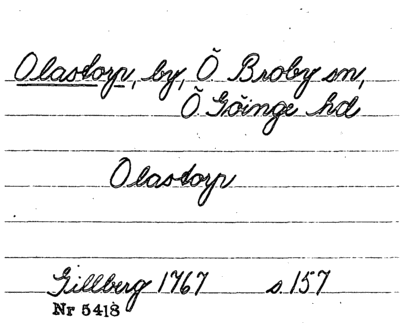 Olastorp, by, Ö Broby sn,
Ö Göinge hd
Olastorp
Gillberg 1767 s 157
Nr 5418